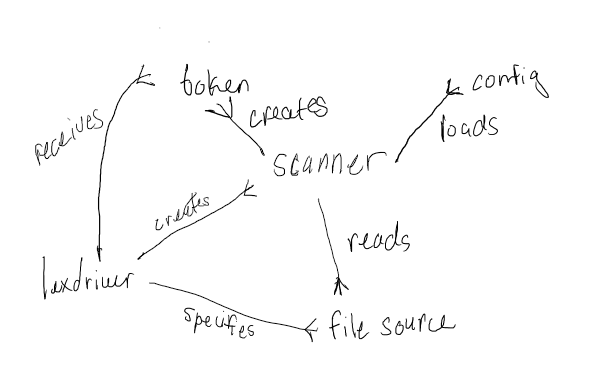 token
config
creates
receives
loads
scanner
creates
reads
lexdriver
specifies
file source